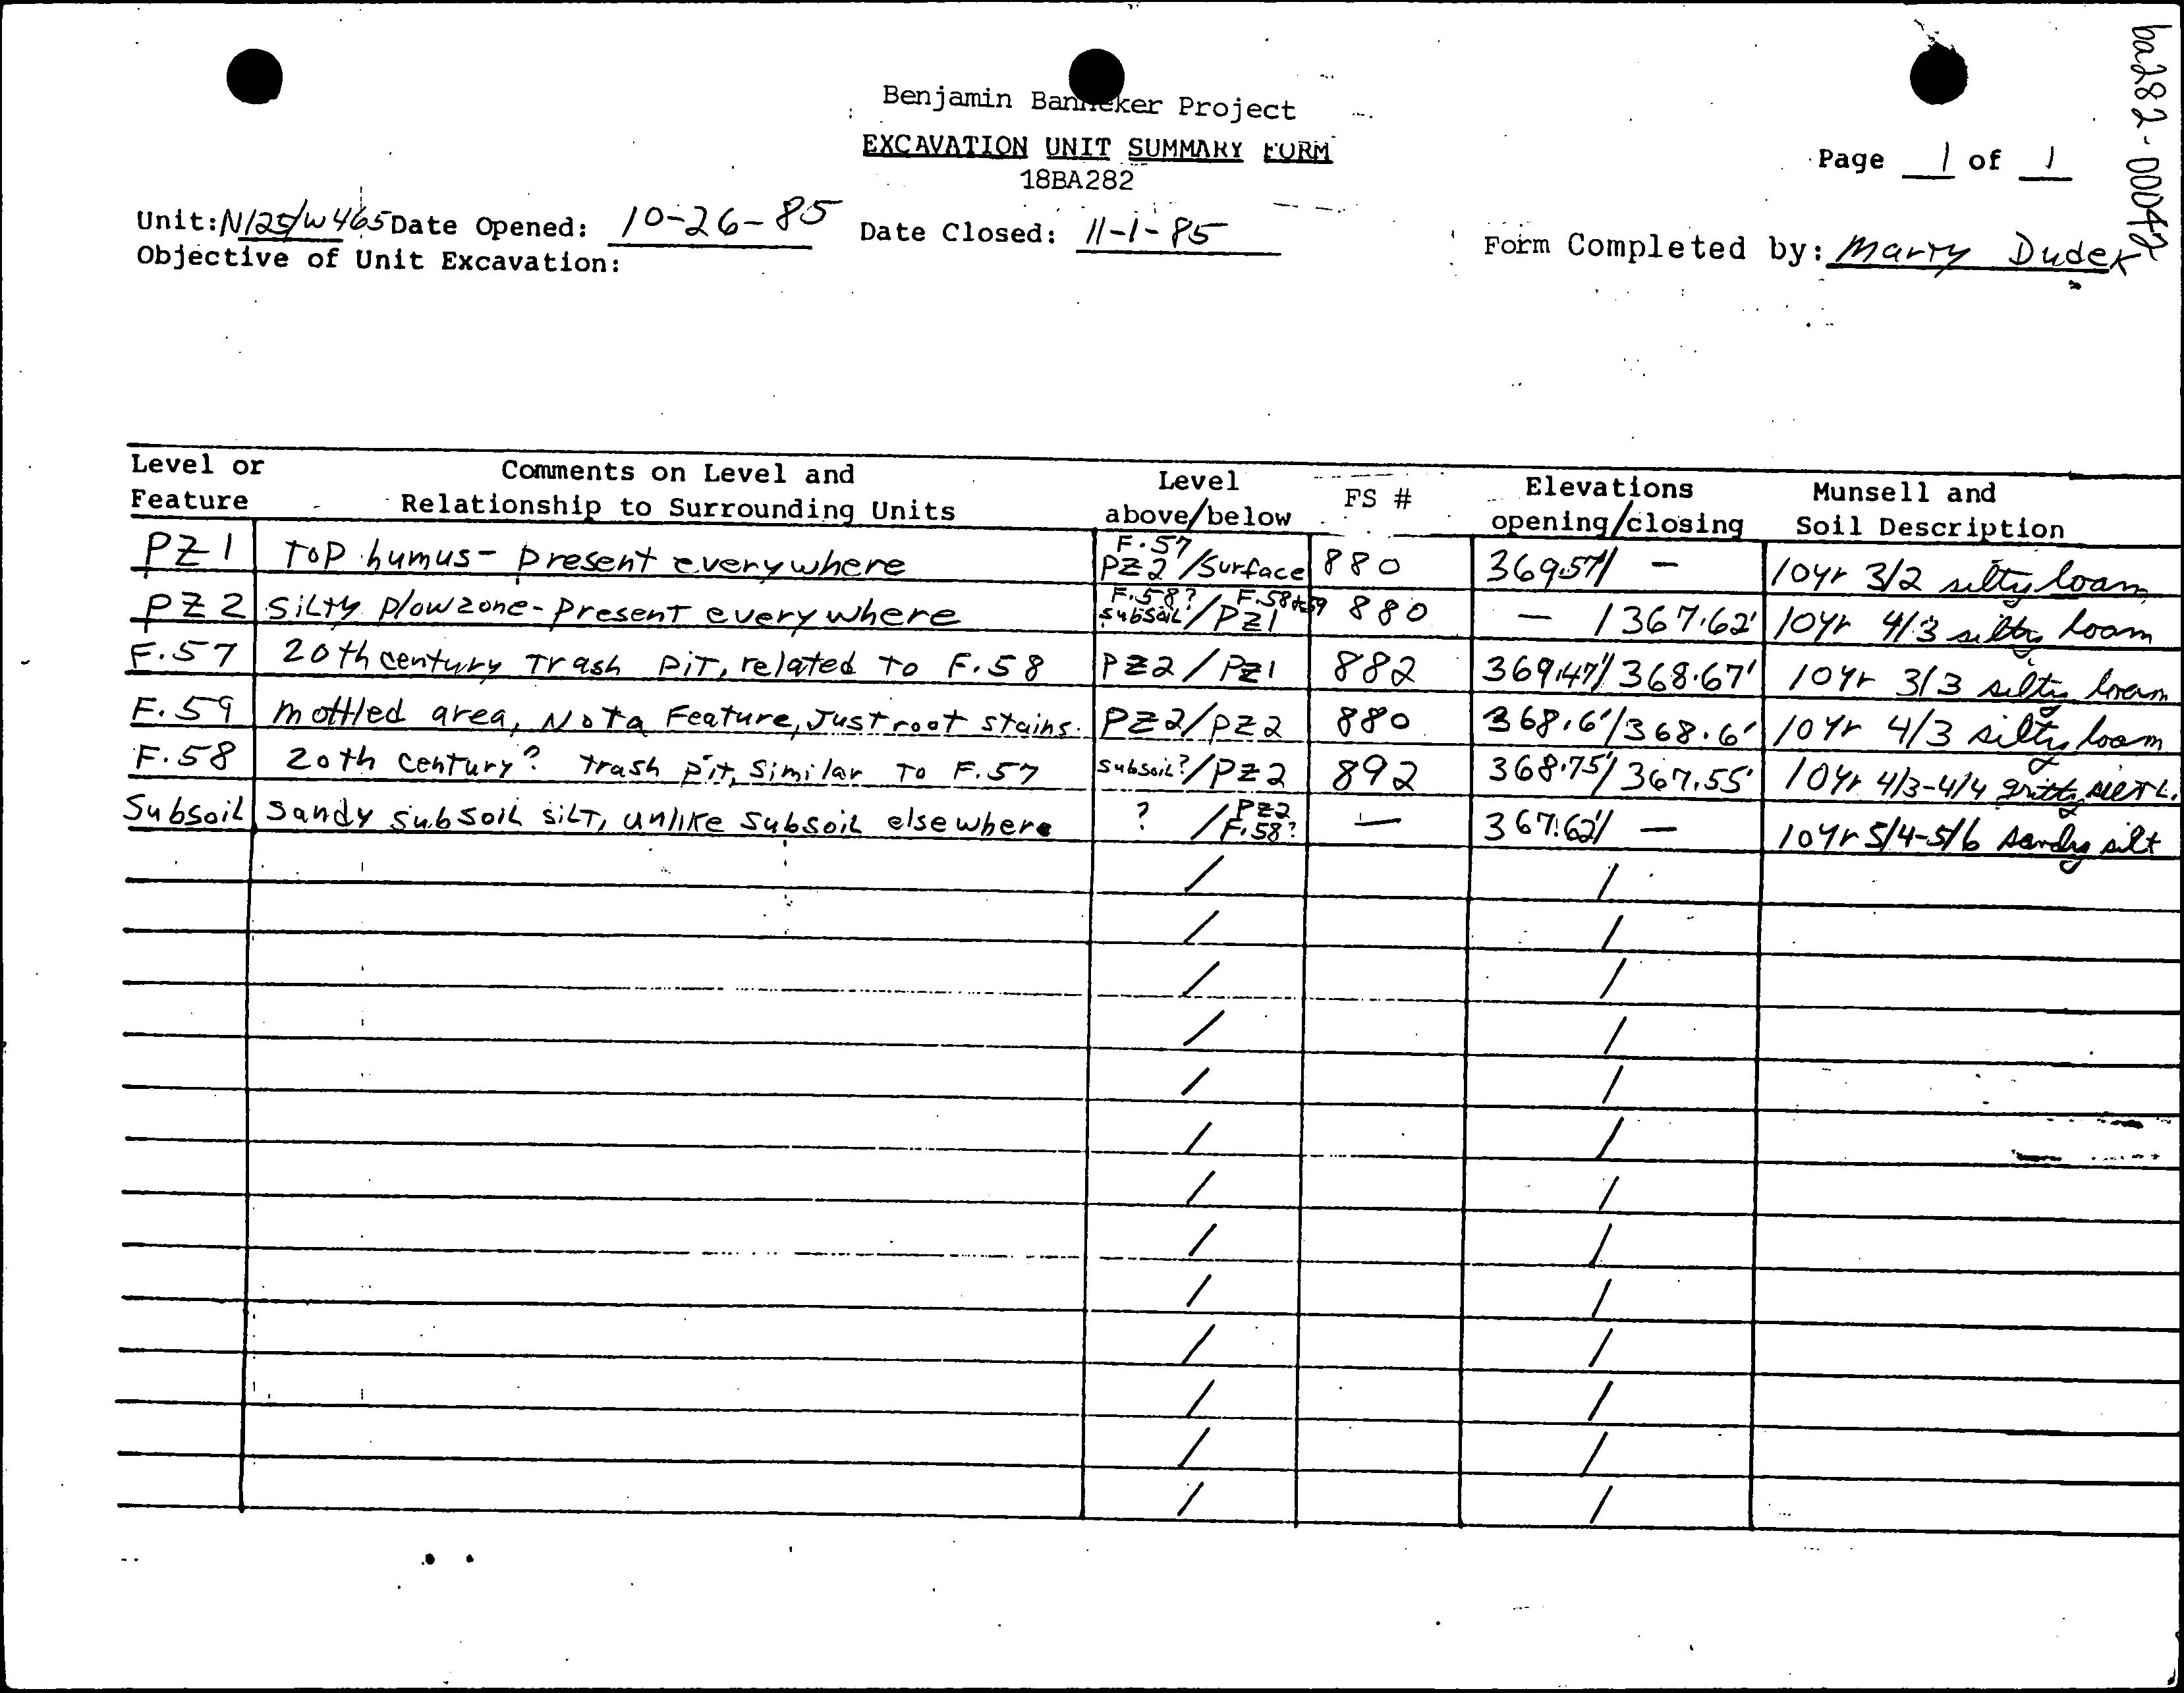 ba282-00042
Benjamin Banneker Project
EXCAVATION UNIT SUMMARY FORM
18BA282
Page 1 of 1
Unit: N125/W465 Date Opened: 10-26-85 Date Closed: 11-1-85 Form Completed by: Marty Dudek
Objective of Unit Excavation:
Level or Feature | Comments on Level and Relationship to Surrounding Units | Level above/below | FS # | Elevations opening/closing | Munsell and Soil Description
PZ 1 | TOP humus - present everywhere | F.57 PZ2/Surface | 880 | 369.57'/ - | 10yr 3/2 silty loam
PZ 2 | SiLTY plowzone - Present everywhere | F.58? subsoil/F.58+59 PZ1 | 880 | - / 367.62' | 10yr 4/3 silty loam
F.57 | 20th century Trash PiT, related To F.58 | PZ2/PZ1 | 882 | 369.47'/368.67' | 10Yr 3/3 silty loam
F.59 | mottled area, Not a Feature, Just root stains. | PZ2/PZ2 | 880 | 368.6'/368.6' | 10Yr 4/3 silty loam
F.58 | 20th century? Trash pit, Similar To F.57 | subsoil?/PZ2 | 892 | 368.75'/367.55' | 10Yr 4/3-4/4 gritty silt L.
Subsoil | Sandy subsoil silt, unlike subsoil elsewhere | ? / PZ2 F.58? | - | 367.62'/ - | 10Yr 5/4-5/6 sandy silt